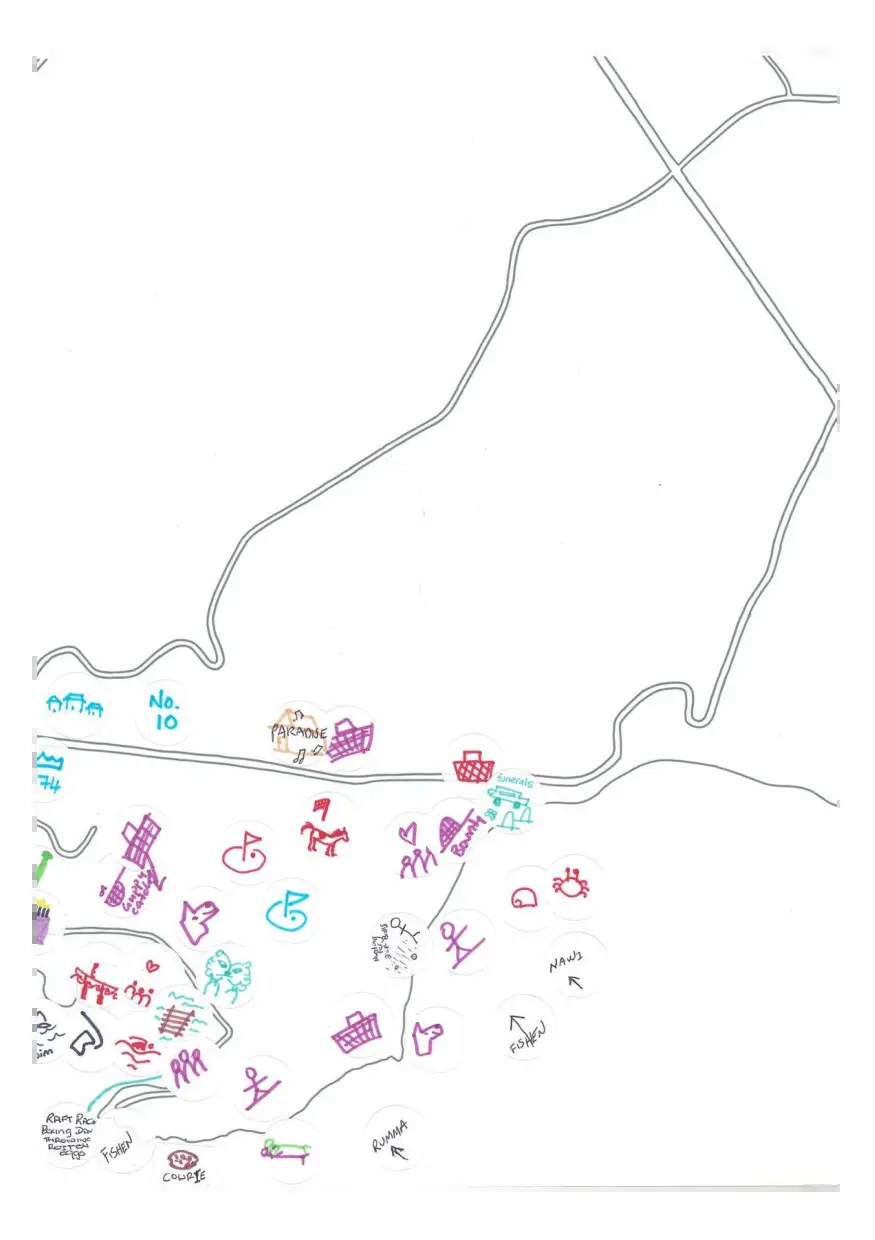 No.
10
PARADISE
74
funerals
Bounty
NAWS
FISHEN
RAFT RACE
BOXING DAY
THROWING
ROTTEN
EGGS
FISHEN
COWRIE
RUMMA